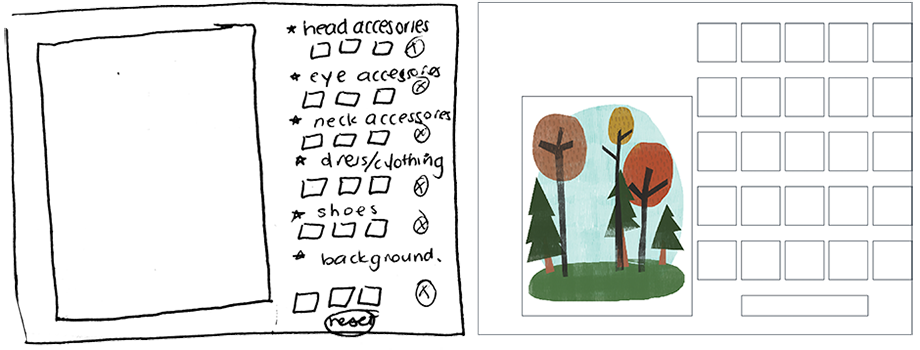 * head accesories
x
* eye accessories
x
* neck accessores
x
* dress/clothing
x
* shoes
x
* background.
x
reset